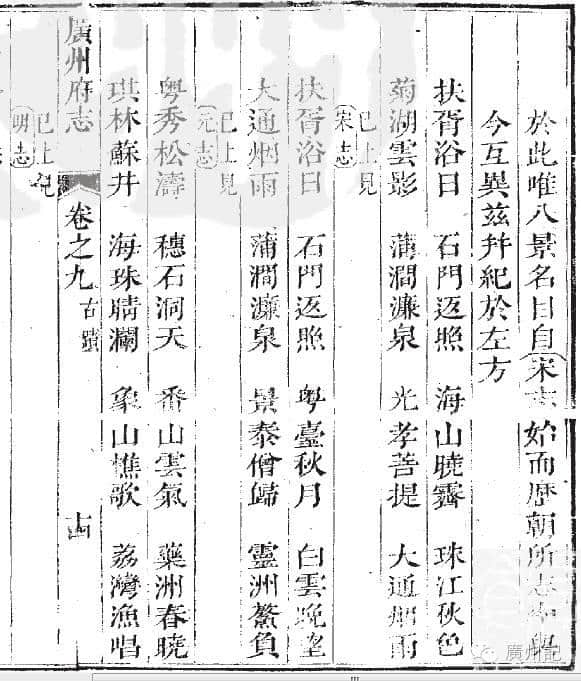 於此唯八景名目自宋志始而歷朝所志
今互異茲并紀於左方
扶胥浴日 石門返照 海山曉霽 珠江秋色
菊湖雲影 蒲澗濂泉 光孝菩提 大通烟雨
已上見宋志
扶胥浴日 石門返照 粵臺秋月 白雲晚望
大通烟雨 蒲澗濂泉 景泰僧歸 靈洲鰲負
已上見元志
粵秀松濤 穗石洞天 番山雲氣 藥洲春曉
琪林蘇井 海珠晴瀾 象山樵歌 荔灣漁唱
廣州府志 卷之九 古蹟 十四
已上見明志
廣州記